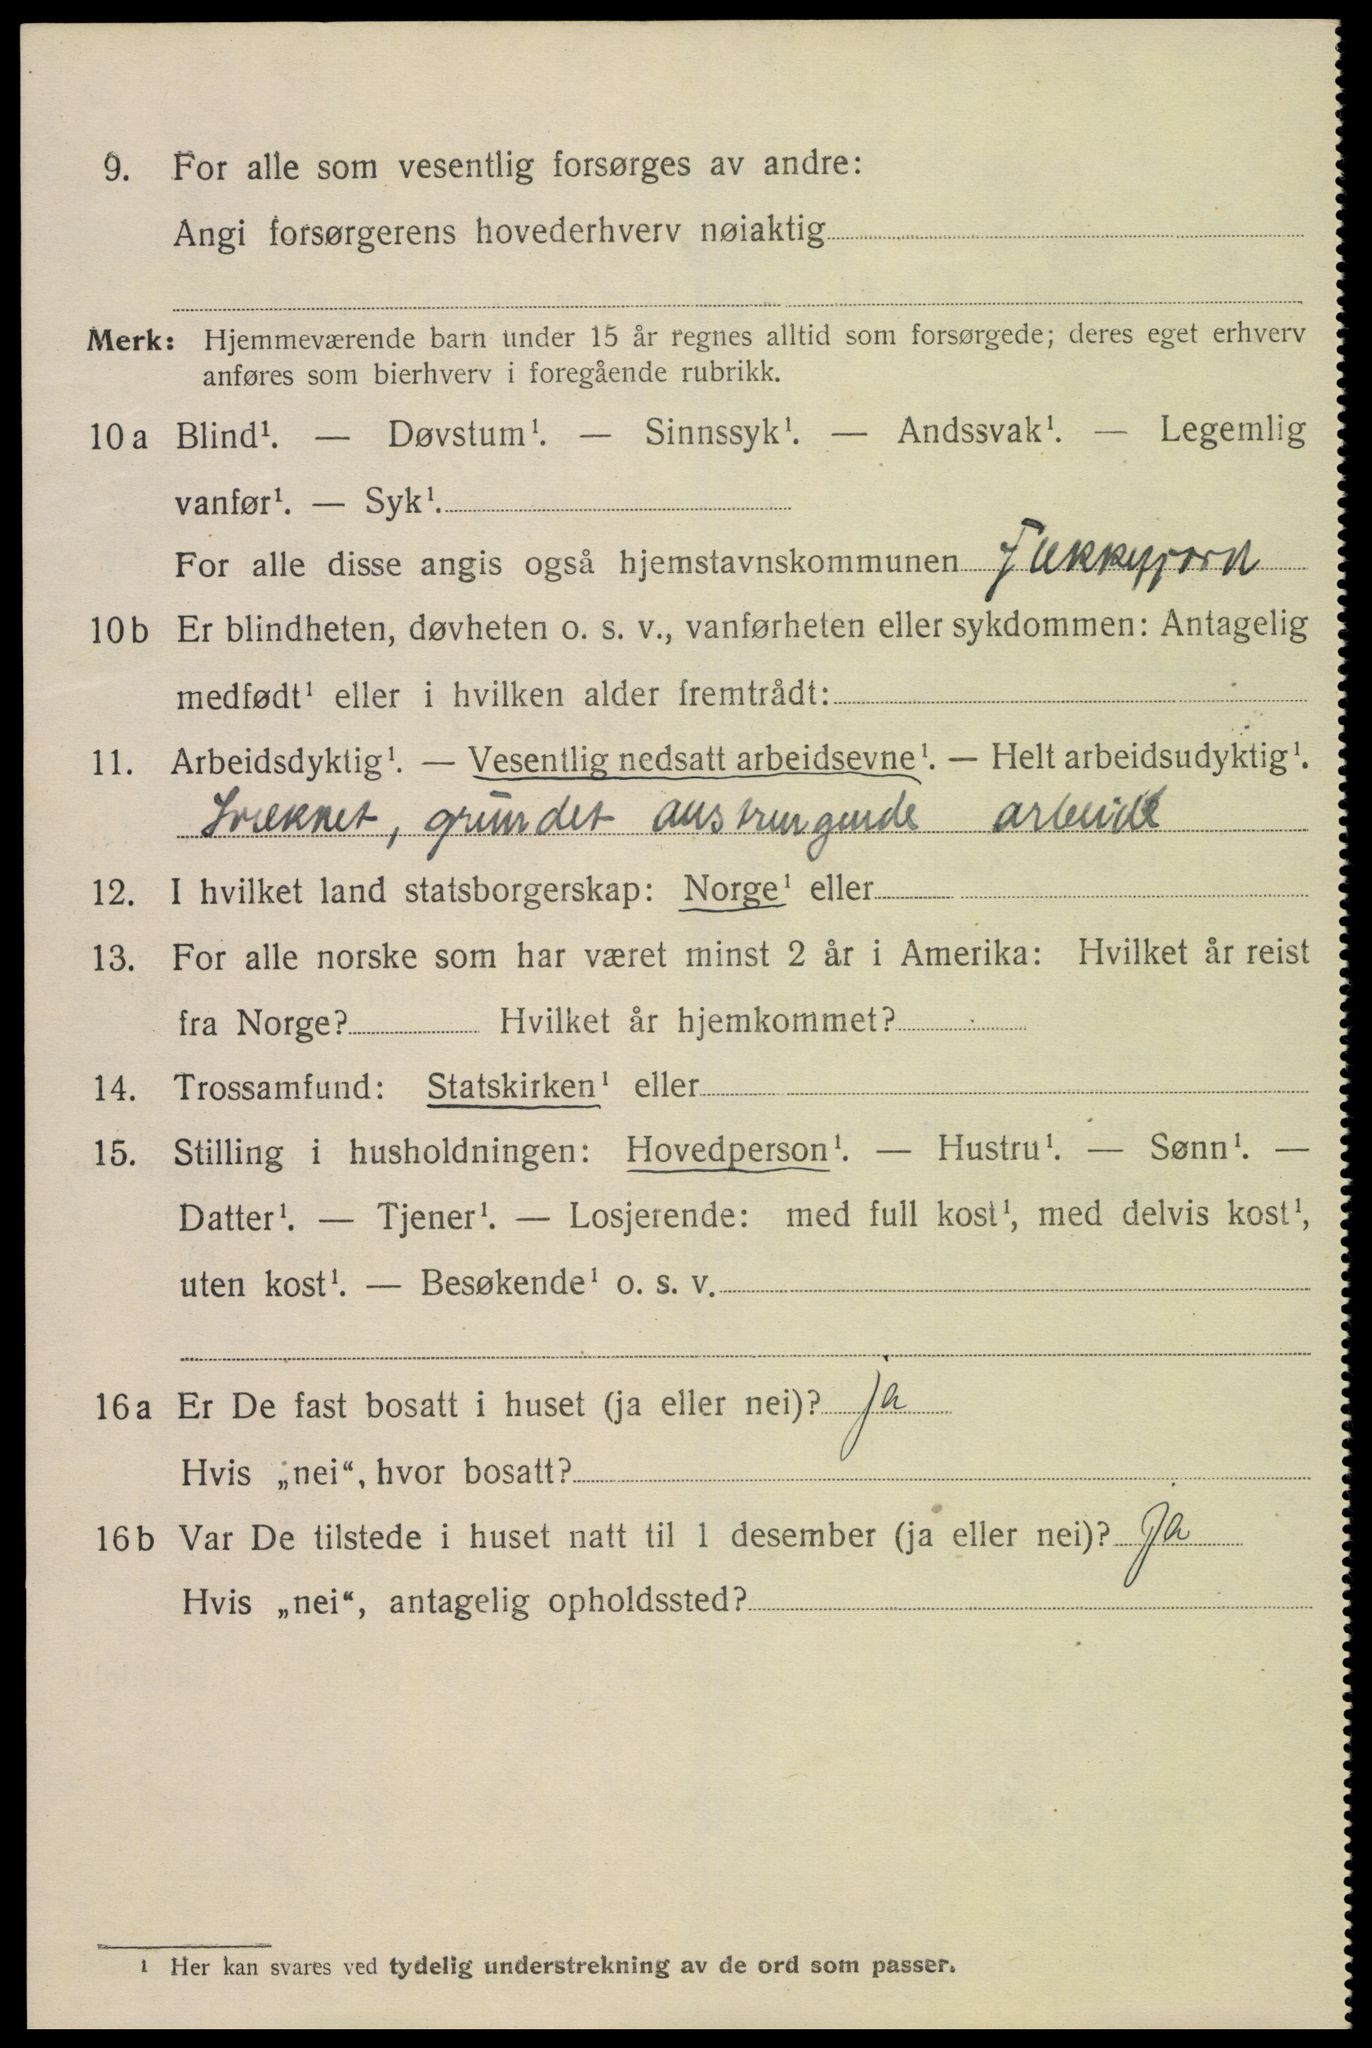 9. For alle som vesentlig forsørges av andre:
Angi forsørgerens hovederhverv nøiaktig
Merk: Hjemmeværende barn under 15 år regnes alltid som forsørgede; deres eget erhverv
anføres som bierhverv i foregående rubrikk.
10 a Blind¹. — Døvstum¹. — Sinnssyk¹. — Andssvak¹. — Legemlig
vanfør¹. — Syk¹.
For alle disse angis også hjemstavnskommunen Flekkefjord
10 b Er blindheten, døvheten o. s. v., vanførheten eller sykdommen: Antagelig
medfødt¹ eller i hvilken alder fremtrådt:
11. Arbeidsdyktig¹. — Vesentlig nedsatt arbeidsevne¹. — Helt arbeidsudyktig¹.
Svekket, grundet anstrengende arbeide
12. I hvilket land statsborgerskap: Norge¹ eller
13. For alle norske som har været minst 2 år i Amerika: Hvilket år reist
fra Norge? Hvilket år hjemkommet?
14. Trossamfund: Statskirken¹ eller
15. Stilling i husholdningen: Hovedperson¹. — Hustru¹. — Sønn¹. —
Datter¹. — Tjener¹. — Losjerende: med full kost¹, med delvis kost¹,
uten kost¹. — Besøkende¹ o. s. v.
16 a Er De fast bosatt i huset (ja eller nei)? ja
Hvis „nei“, hvor bosatt?
16 b Var De tilstede i huset natt til 1 desember (ja eller nei)? ja
Hvis „nei“, antagelig opholdssted?
¹ Her kan svares ved tydelig understrekning av de ord som passer.